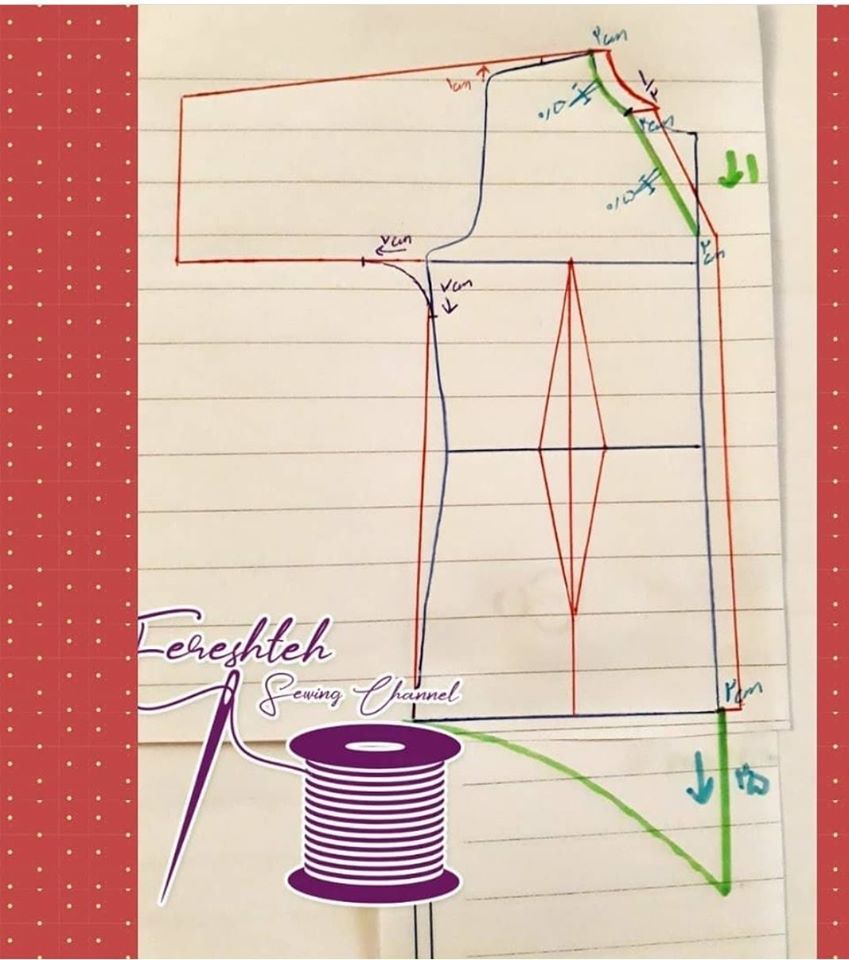 ۲cm
۱cm
۱/۲
۰,۵
۲cm
۱
۰,۵
۷cm
۲cm
۷cm
Fereshteh
Sewing Channel
۲cm